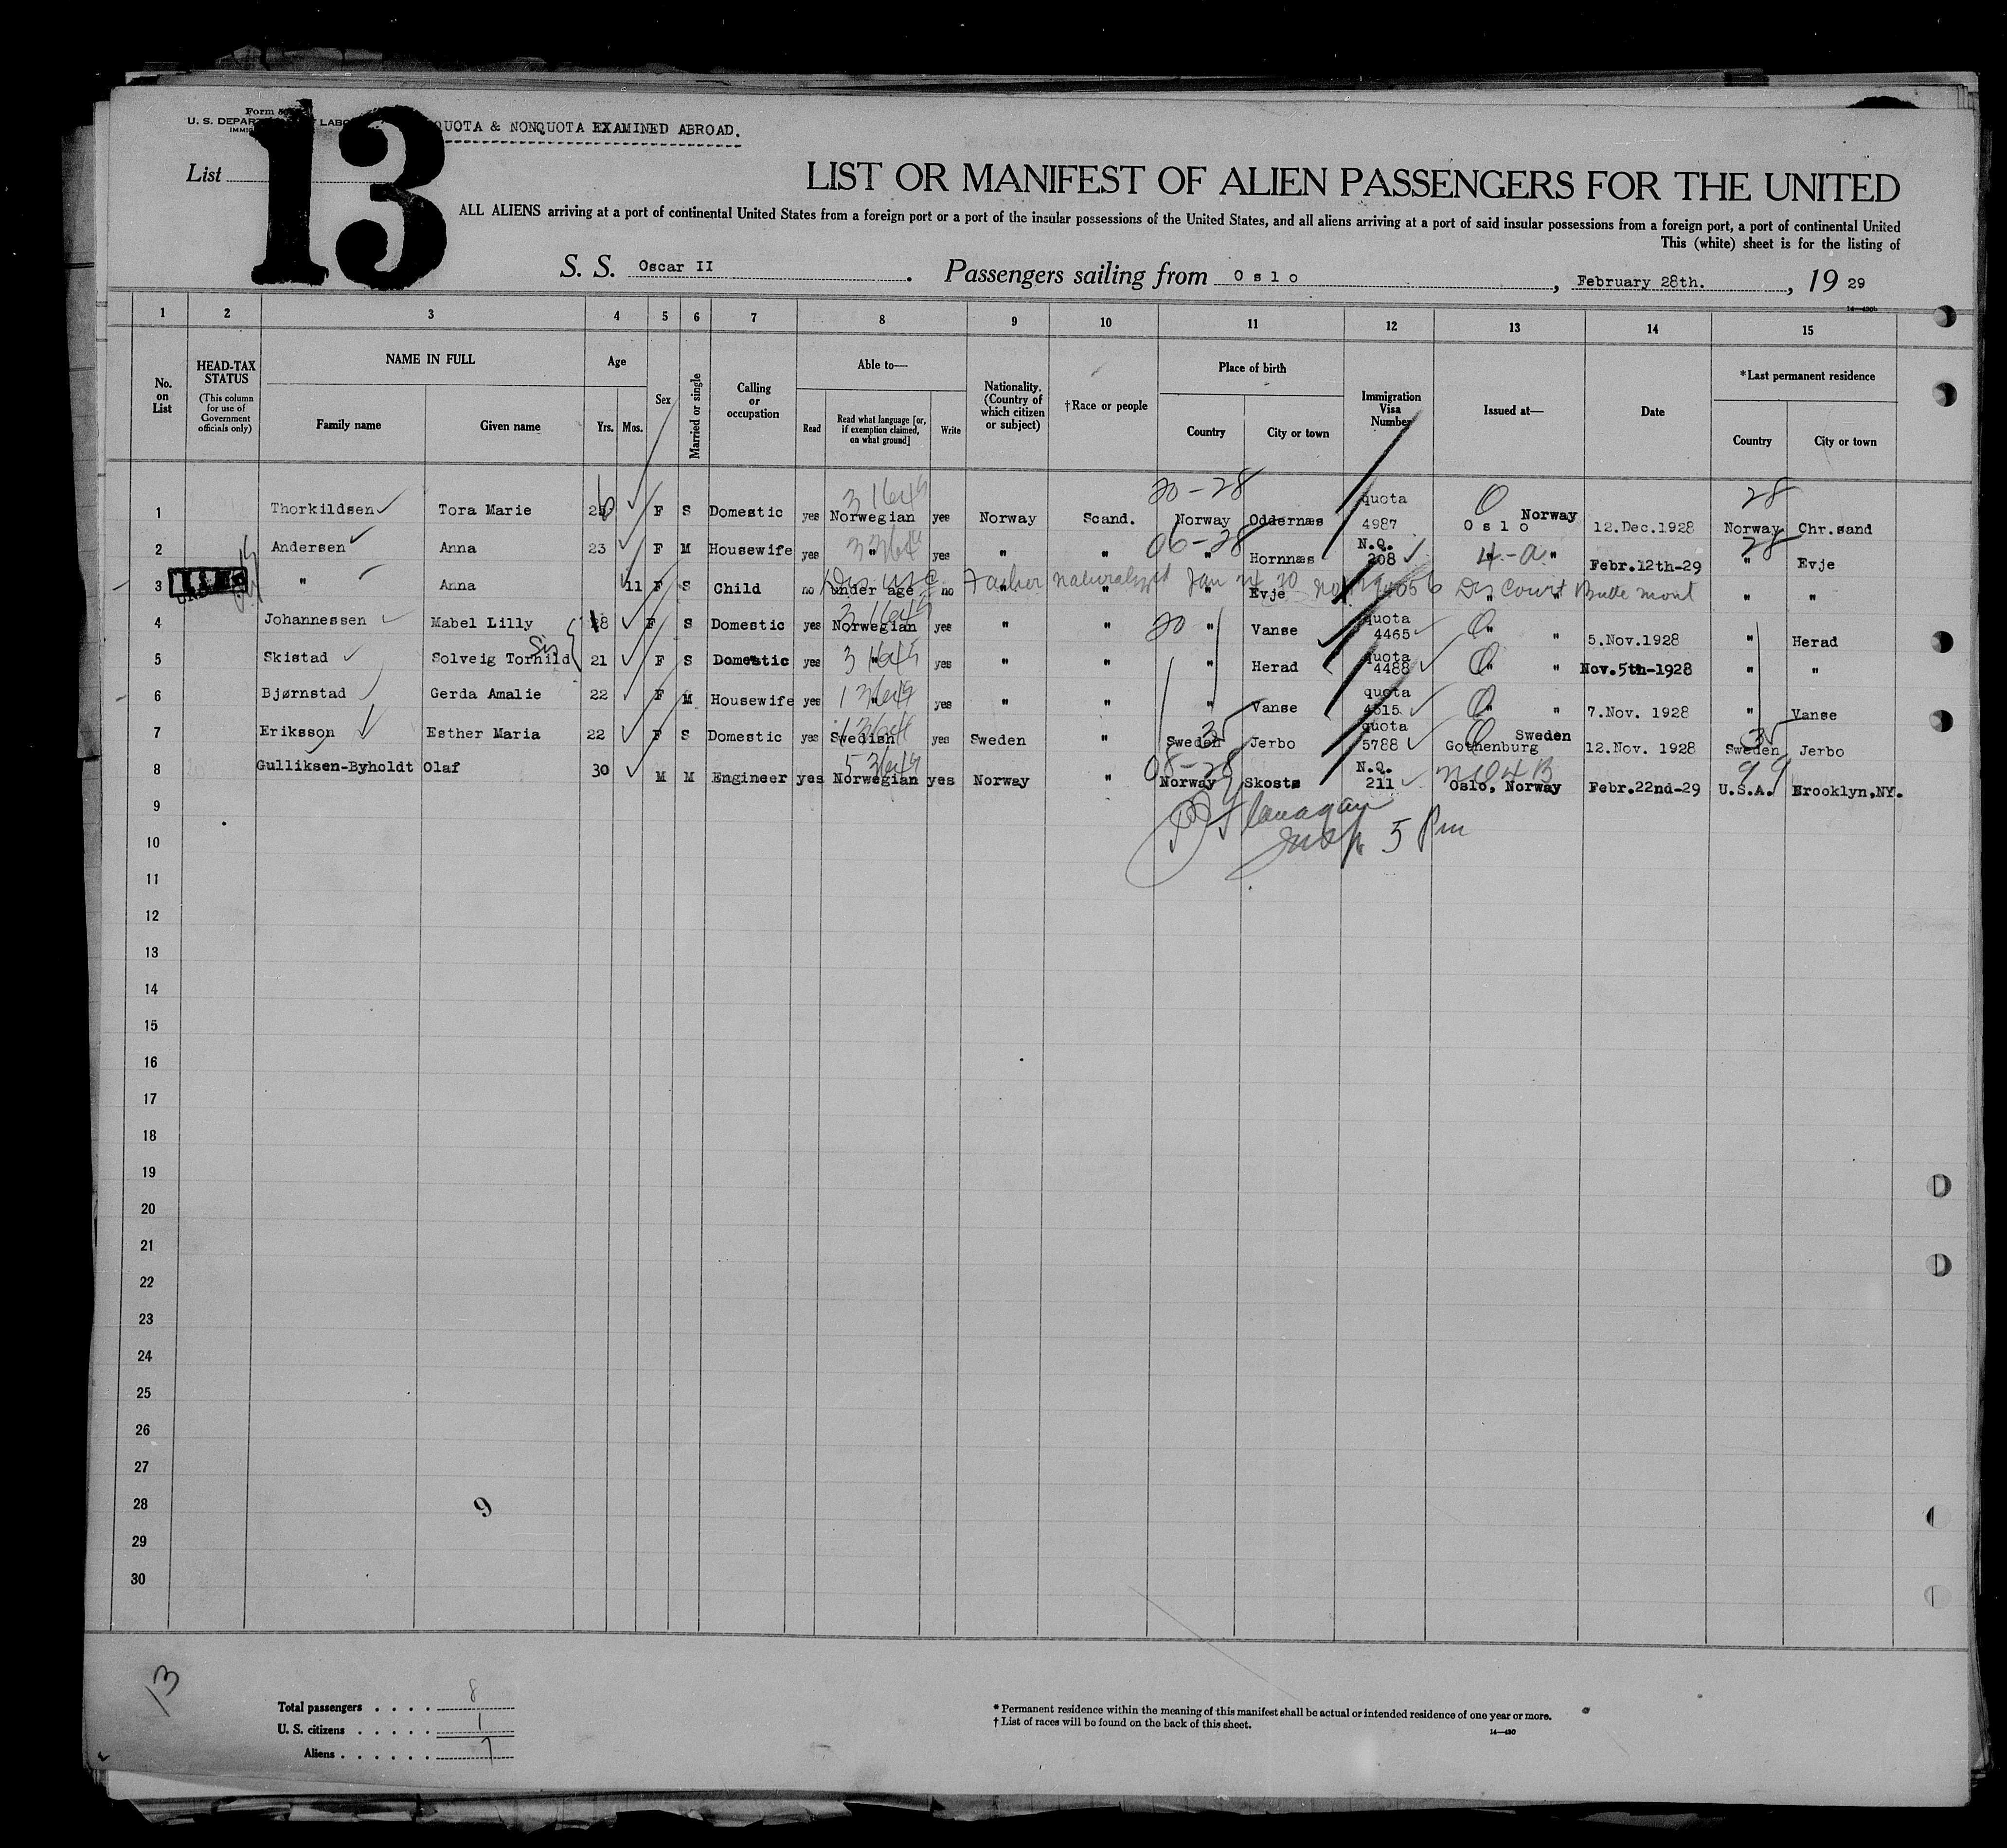 Form 500
U. S. DEPARTMENT OF LABOR
QUOTA & NONQUOTA EXAMINED ABROAD.
13
List
LIST OR MANIFEST OF ALIEN PASSENGERS FOR THE UNITED
ALL ALIENS arriving at a port of continental United States from a foreign port or a port of the insular possessions of the United States, and all aliens arriving at a port of said insular possessions from a foreign port, a port of continental United
This (white) sheet is for the listing of
S. S. Oscar II. Passengers sailing from Oslo, February 28th., 19 29
14—430b
1 2 3 4 5 6 7 8 9 10 11 12 13 14 15
No. on List
HEAD-TAX STATUS (This column for use of Government officials only)
NAME IN FULL
Family name Given name
Age
Yrs. Mos.
Sex
Married or single
Calling or occupation
Able to—
Read Read what language [or, if exemption claimed, on what ground] Write
Nationality. (Country of which citizen or subject)
†Race or people
Place of birth
Country City or town
Immigration Visa Number
Issued at—
Date
*Last permanent residence
Country City or town
20-28 28
1 Thorkildsen Tora Marie F S Domestic yes Norwegian yes Norway Scand. Norway Oddernæs quota 4987 O Oslo Norway 12.Dec.1928 Norway Chr.sand
06-28 28
2 Andersen Anna 23 F M Housewife yes " yes " " " Hornnæs N.Q. 208 4-a " " Febr.12th-29 " Evje
3 " Anna 11 F S Child no under age no " " " Evje " " " "
Father naturalized Jan Dis Court Butte Mont
4 Johannessen Mabel Lilly 18 F S Domestic yes Norwegian yes " " 20 " Vanse quota 4465 O " " 5.Nov.1928 " Herad
Sis
5 Skistad Solveig Torhild 21 F S Domestic yes " yes " " " Herad quota 4488 O " " Nov.5th-1928 " "
6 Bjørnstad Gerda Amalie 22 F M Housewife yes " yes " " " Vanse quota 4515 O " " 7.Nov. 1928 " Vanse
7 Eriksson Esther Maria 22 F S Domestic yes Swedish yes Sweden " Sweden Jerbo quota 5788 O Gothenburg Sweden 12.Nov. 1928 Sweden Jerbo
08-28 99
8 Gulliksen-Byholdt Olaf 30 M M Engineer yes Norwegian yes Norway " Norway Skostø N.Q. 211 Oslo, Norway Febr.22nd-29 U.S.A. Brooklyn,NY.
9
Flanagan
10
Insp 5 Pm
11
12
13
14
15
16
17
18
19
20
21
22
23
24
25
26
27
28 9
29
30
13
Total passengers . . . . 8
U. S. citizens . . . . . 1
Aliens . . . . . . 7
* Permanent residence within the meaning of this manifest shall be actual or intended residence of one year or more.
† List of races will be found on the back of this sheet.
14—430